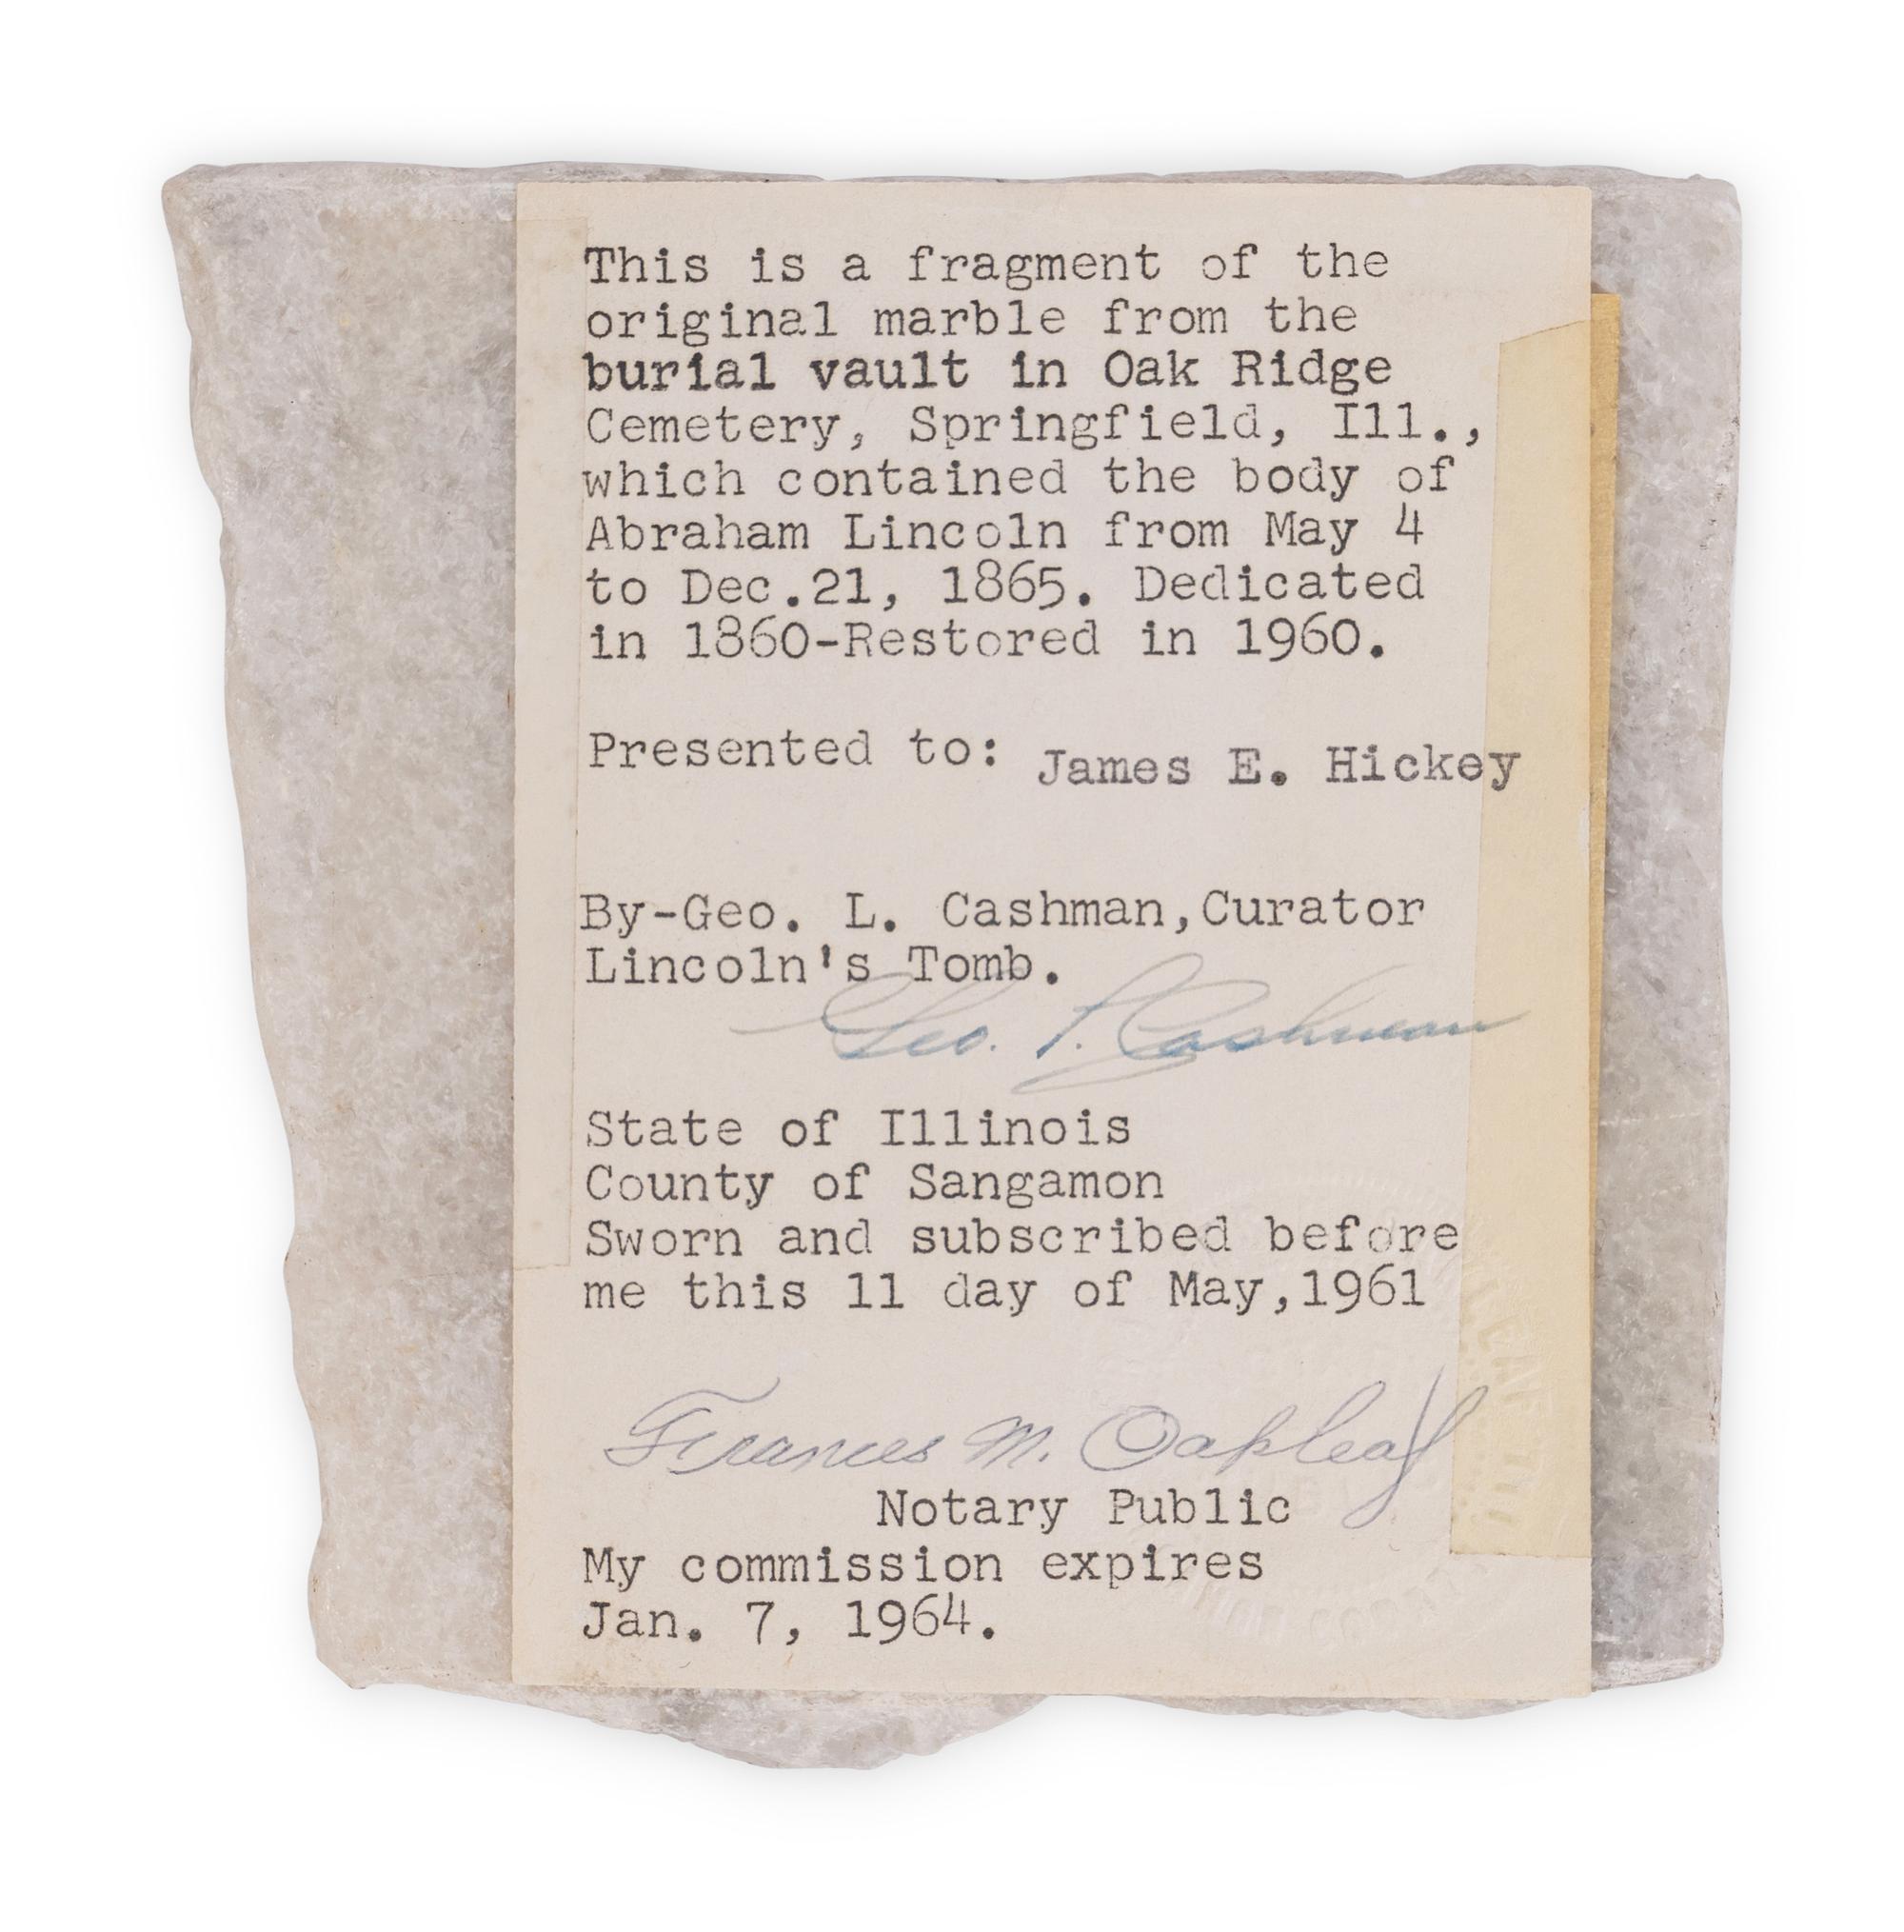 This is a fragment of the
original marble from the
burial vault in Oak Ridge
Cemetery, Springfield, Ill.,
which contained the body of
Abraham Lincoln from May 4
to Dec.21, 1865. Dedicated
in 1860-Restored in 1960.
Presented to: James E. Hickey
By-Geo. L. Cashman,Curator
Lincoln's Tomb.
Geo. L. Cashman
State of Illinois
County of Sangamon
Sworn and subscribed before
me this 11 day of May,1961
Frances M. Oakleaf
Notary Public
My commission expires
Jan. 7, 1964.